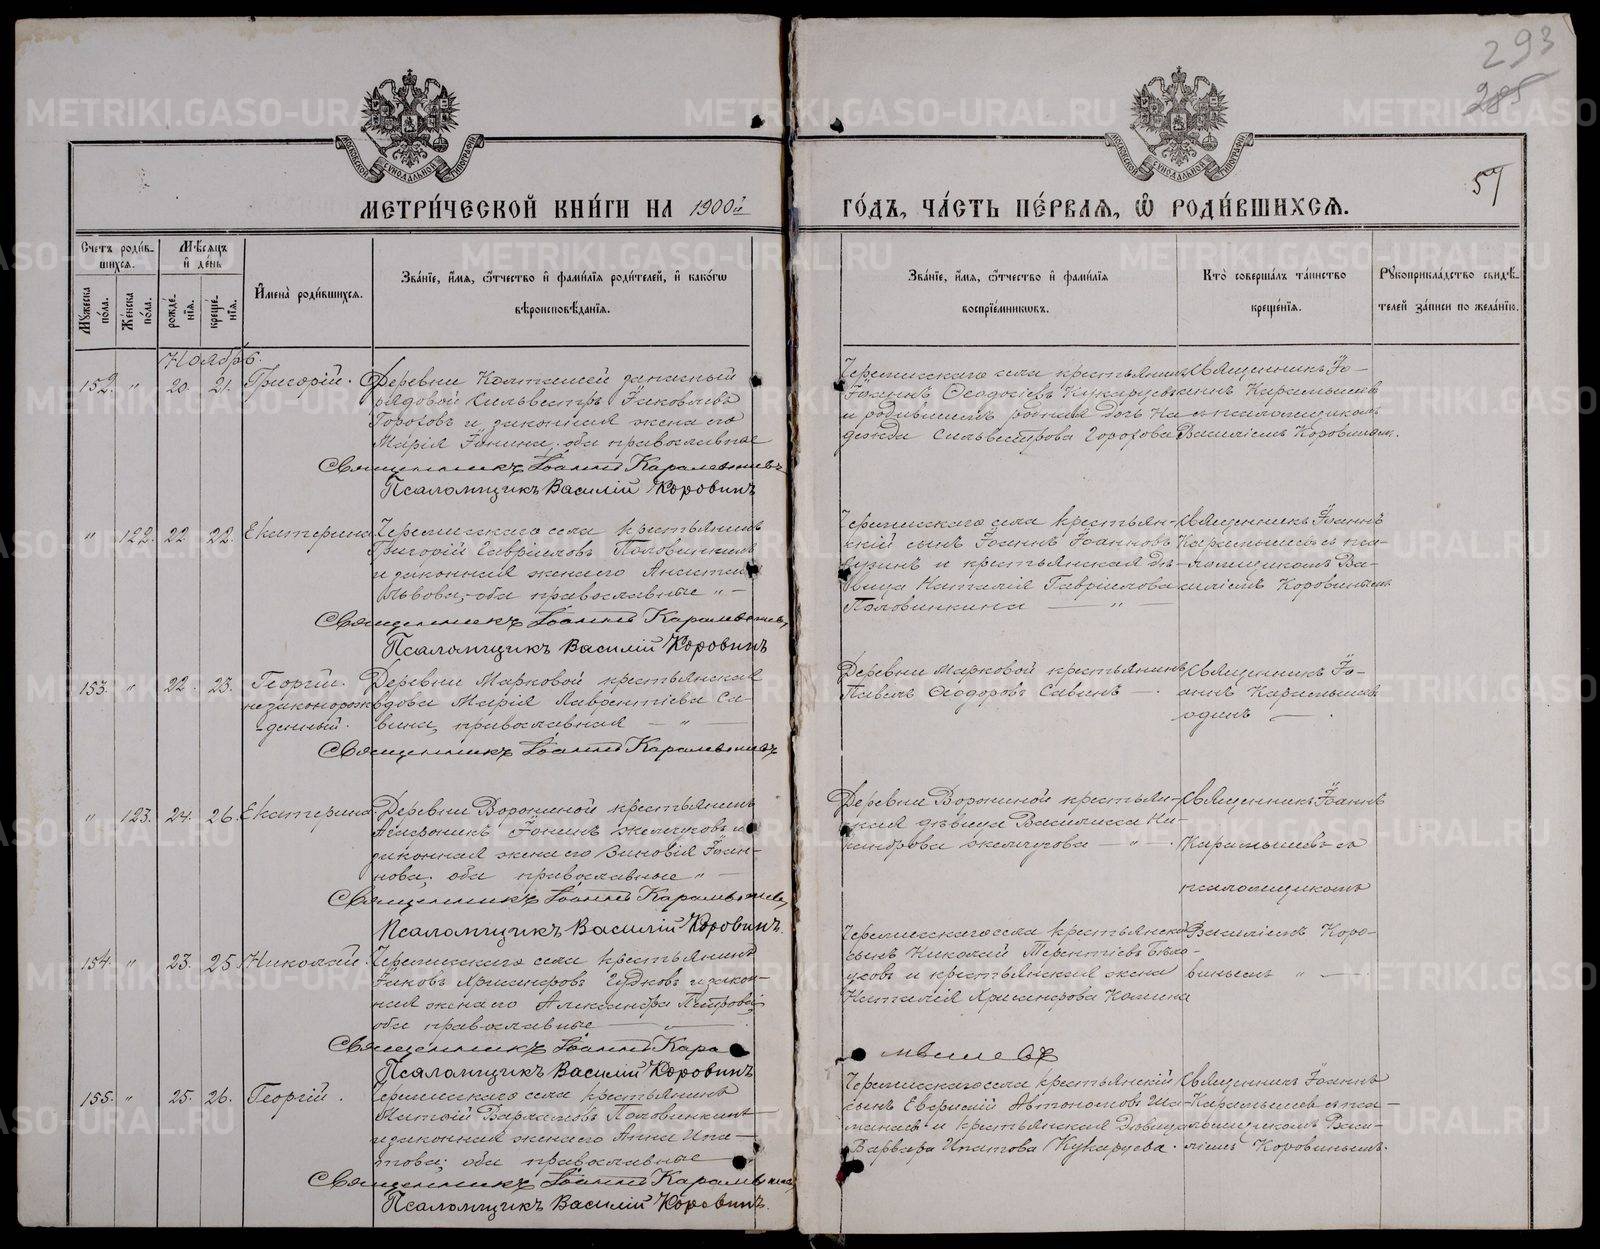 293
285
57
МЕТРИ́ЧЕСКОЙ КНИ́ГИ НА 1900й
ГО́ДЪ, ЧА́СТЬ ПЕ́РВАЯ, Ѡ РОДИ́ВШИХСЯ.
Счетъ роди́в-
шихся.
Мѣ́сяцъ
и де́нь
Му́жеска по́ла.
Же́нска по́ла.
рожде́-
нїя.
креще́-
нїя.
И҆мена̀ роди́вшихся.
Зва́нїе, и҆́мя, ѻ҆́тчество и҆ фами́лїя роди́телей, и҆ како́гѡ
вѣроисповѣ́данїя.
Зва́нїе, и҆́мя, ѻ҆́тчество и҆ фами́лїя
воспрїе́мникѡвъ.
Кто̀ соверша́лъ та́инство
креще́нїя.
Рꙋкоприкла́дство свидѣ́-
телей за́писи по жела́нїю.
Ноябрь.
152. " 20. 21. Григорій. Деревни Колташей запасный
рядовой Сильвестръ Іаковлевъ
Гороховъ и законная жена его
Марія Іонина, оба православные
Священникъ Іоаннъ Карамышевъ
Псаломщикъ Василій Коровинъ
Черемисскаго села
Іоаннъ Ѳеодосіевъ Кукарцевъ
и родившемъ родная дочь На-
дежда Сильвестрова Горохова
Священникъ Іо-
аннъ Карамышевъ
съ псаломщикомъ
Василіемъ Коровинымъ.
" 122. 22 22. Екатерина Черемисскаго села крестьянинъ
Григорій Гавріиловъ Половинкинъ
и законная жена его
Львова, оба православные " —
Священникъ Іоаннъ Карамышевъ
Псаломщикъ Василій Коровинъ
Черемисскаго села крестьян-
скій сынъ Іоаннъ Іоанновъ
и крестьянская дѣ-
вица Наталія Гавріилова
Половинкина — " —
Священникъ Іоаннъ
Карамышевъ съ пса-
ломщикомъ Ва-
силіемъ Коровинымъ
153. " 22. 23. Георгій.
незаконорож-
денный.
Деревни Марковой крестьянская
вдова Марія Лаврентіева Са-
вина, православная — " —
Священникъ Іоаннъ Карамышевъ
Деревни Марковой крестьянинъ
Павелъ Ѳеодоровъ Савинъ — .
Священникъ Іо-
аннъ Карамышевъ
одинъ — .
" 123. 24. 26. Екатерина. Деревни Ворониной крестьянинъ
Іонинъ Жемчуговъ и
законная жена его Зиновія Іоан-
нова, оба православные " —
Священникъ Іоаннъ Карамышевъ
Псаломщикъ Василій Коровинъ.
Деревни Ворониной крестьян-
ская дѣвица Василисса Ни-
кандрова Жемчугова — " — .
Священникъ Іоаннъ
Карамышевъ съ
псаломщикомъ
Василіемъ Коро-
винымъ " — .
154. " 23. 25. Николай. Черемисскаго села крестьянинъ
Іаковъ Хрисанфовъ и закон-
ная жена его Александра Петрова,
оба православные — " —
Священникъ Іоаннъ Кара
мышевъ
Псаломщикъ Василій Коровинъ
Черемисскаго села крестьянскій
сынъ Николай Терентіевъ Бѣло-
усовъ и крестьянская жена
Наталія Хрисанфова
155. " 25. 26. Георгій. Черемисскаго села крестьянинъ
Варлаамовъ Половинкинъ
и законная жена его Анна Ипа-
това, оба православные —
Священникъ Іоаннъ Карамышевъ
Псаломщикъ Василій Коровинъ.
Черемисскаго села крестьянскій
сынъ Евгеній Автономовъ Ша-
манаевъ и крестьянская дѣвица
Варвара Ипатова Кукарцева.
Священникъ Іоаннъ
Карамышевъ съ пса-
ломщикомъ Васи-
ліемъ Коровинымъ.
METRIKI.GASO-URAL.RU